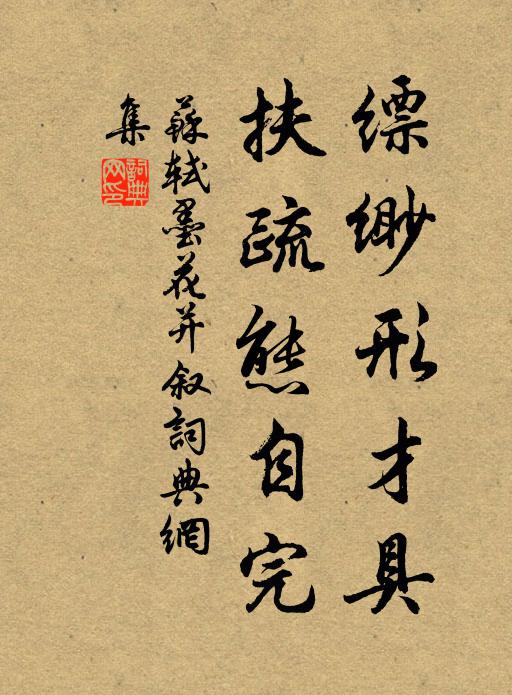 缥缈形才具
扶疏態自完
蘇軾墨花并叙詞典網
集
詞典网印